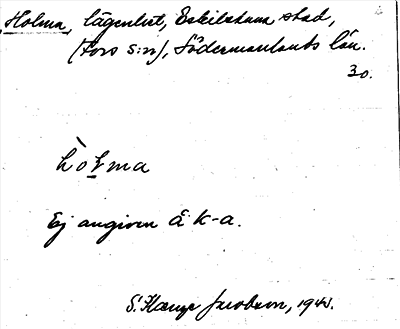 Holma, lägenhet, Eskilstuna stad,
(Fors s:n), Södermanlands län.
30.
hòḷma
Ej angiven å K-a.
S. Jacobson, 194